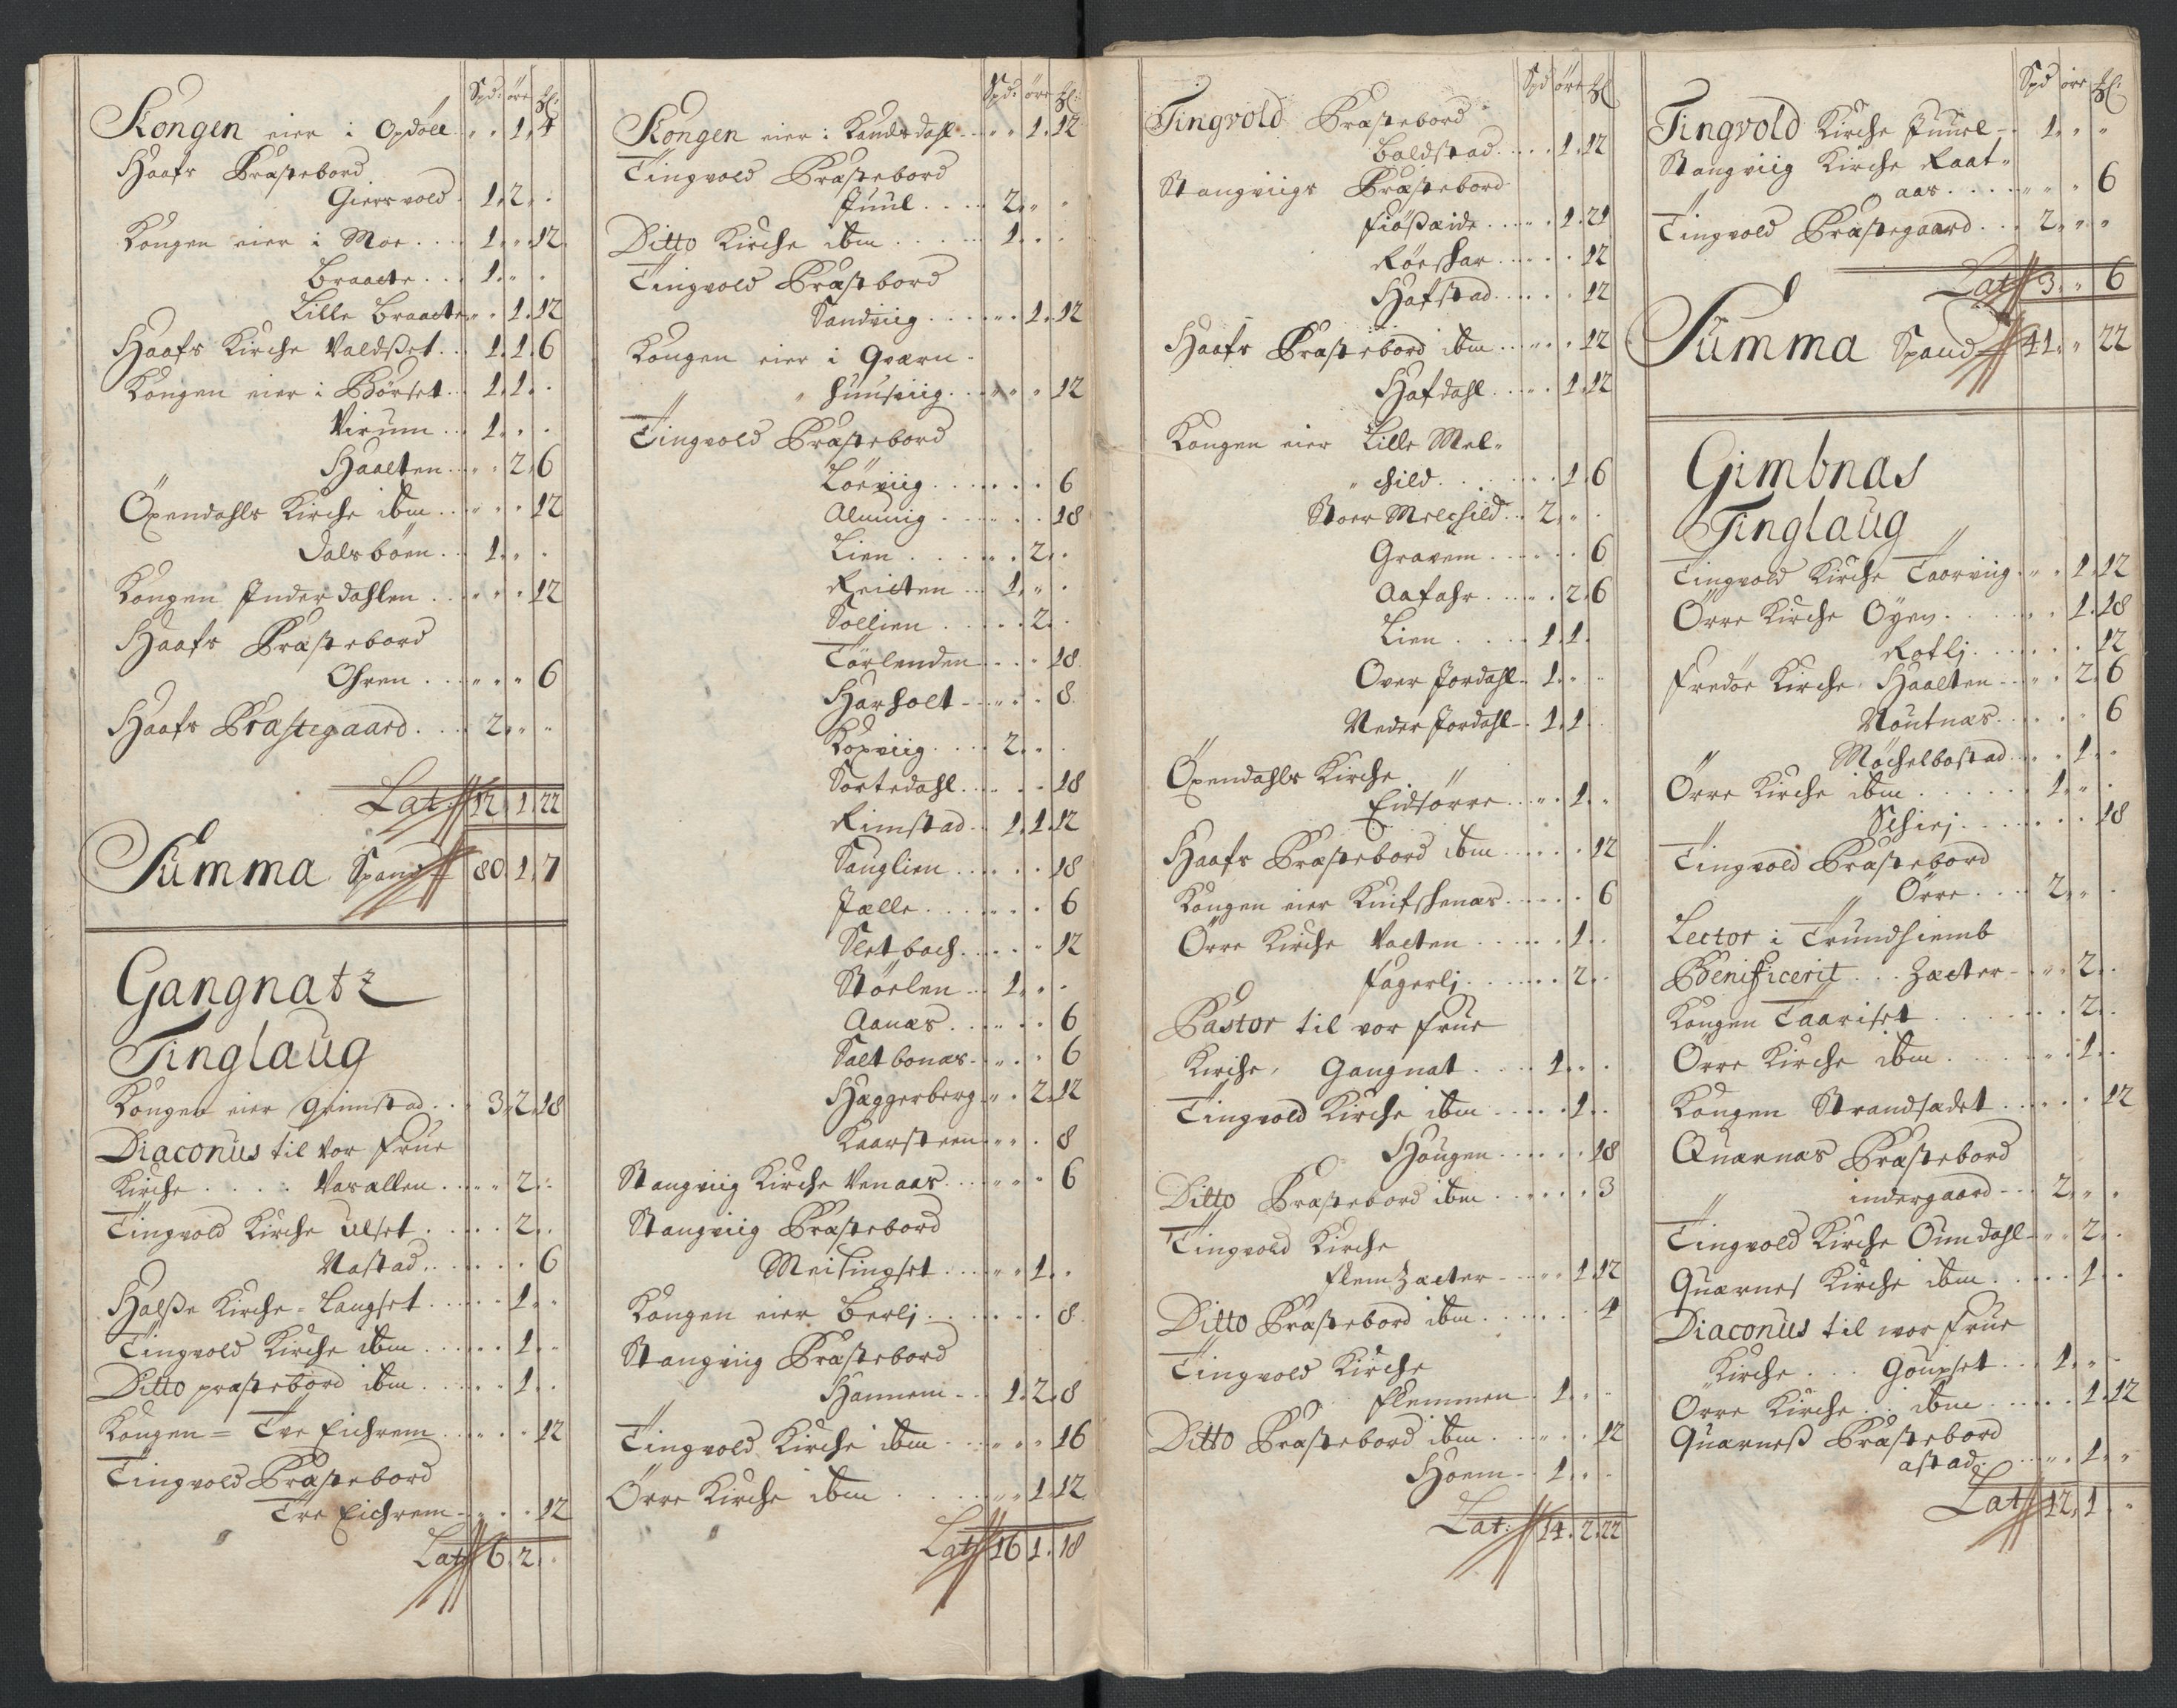 Spd: öre ℔:
Kongen eier i Opdöll . . 1. 4
Haafs Præstebord
Giersvold . 1. 2. .
Kongen eier i Moe . . . 1. . 12
Braatte . . 1. . .
Lille Braatte . . 1. 12
Haafs Kirche Valdsset . . 1. 1. 6
Kongen eier i Börset . . 1. 1. .
Virum . . 1. . .
Haalten . . . 2. 6
Öxendahls Kirche ibm . . . . 12
Dalsböen . . 1. . .
Kongen Inderdahlen . . . . 12
Haafs Præstebord
Ohren . . . . 6
Haafs Præstegaard . . . 2. . .
Lat: 12. 1. 22
Summa Spand 80. 1. 7
Gangnatz
Tinglaug
Kongen eier Grimstad . . 3. 2. 18
Diaconus til Vor Frue
Kirche . . . . Vasallen . . . 2. .
Tingvold Kirche Ulset . . . . 2. .
Nastad . . . . . 6
Halsse Kirche = Langset . . . . 1. .
Tingvold Kirche ibm . . . . . 1. .
Ditto præstebord ibm . . . . . 1. .
Kongen = Tre Eichrem . . . . 12
Tingvold Præstebord
Tre Eichrem . . . . 12
Lat 6. 2. .
Spd: öre ℔:
Kongen eier i Kandsdahl . . . 1. 12
Tingvold Præstebord
Juul . . . . 2. . .
Ditto Kirche ibm . . . . . 1. . .
Tingvold Præstbord
Sandviig . . . . . 1. 12
Kongen eier i Qværn-
" huusviig . . . . . 12
Tingvold Præstebord
Löeviig . . . . . . 6
Alunviig . . . . . . 18
Lien . . . . . . 2. .
Reitten . . . 1. . .
Sollien . . . . . 2. .
Törlenden . . . . 18
Harholt . . . . . 8
Koxviig . . . . 2. . .
Sortedahl . . . . . 18
Rimstad . . 1. 1. 12
Sanglien . . . . . 18
Jælle . . . . . . 6
Sletbach . . . . . 12
Stöelen . . 1. . .
Aanæs . . . . . 6
Saltbonæs . . . . . 6
Hæggerberg . . . 2. 12
Kaarsteen . . . . 8
Stangviig Kirche Venaas . . . . . 6
Stangviig Præstebord
Meisingset . . . . . 1. .
Kongen eier Berlj . . . . . . . 8
Stangviig Præstebord
Hannem . . . 1. 2. 8
Tingvold Kirche ibm . . . . . 16
Örre Kirche ibm . . . . . 1. 12
Lat 16. 1. 18
Spd öre ℔
Tingvold Præstebord
Boldstad . . . . 1. 12
Stangviigs Præstebord
Fiössæide . . . . 1. 21
Röeskar . . . . . 12
Hafstad . . . . . 12
Haafs Præstebord ibm . . . . . 12
Hafdahl . . . . 1. 12
Kongen eier Lille Mel-
" child . . . . . . . 1. 6
Stoer Melchild . . 2. . .
Gravem . . . . . . 6
Aafahr . . . . . 2. 6
Lien . . . . 1. 1. .
Over Jordahl . 1. . .
Neder Jordahl . 1. 1. .
Öxendahls Kirche
Eidsörre . . . . 1. .
Haafs Præstebord ibm . . . . . 12
Kongen eier Knifsehnæs . . . . . 6
Örre Kirche Vatten . . . . . . 1. .
Fagerlj . . . . . . 2. .
Pastor til vor Frue
Kirche, Gangnat . . . . 1. . .
Tingvold Kirche ibm . . . . . 1. .
Hougen . . . . . . 18
Ditto Præstebord ibm . . . . . . 3
Tingvold Kirche
Flemzætter . . . . 1. 12
Ditto Præstebord ibm . . . . . . 4
Tingvold Kirche
Flemmen . 1. . .
Ditto Præstebord ibm . . . . . 12
Hoem . . 1. . .
Lat: 14. 2. 22
Spd öre ℔:
Tingvold Kirche Juuel . . 1. . .
Stangviig Kirche Raat-
aas . . . . . . . 6
Tingvold Præstegaard . . . 2. . .
Lat 3. . 6
Summa Spand 41. . 22
Gimbnæs
Tinglaug
Tingvold Kirche Taarviig . . . 1. 12
Örre Kirche Öyen . . . . . . 1. 18
Rotlj . . . . . . . 12
Fredöe Kirche Haalten . . . . 2. 6
Noutnæs . . . . . 6
Möchelbostad . . . 1. .
Örre Kirche ibm . . . . . . 1. . .
Schiej . . . . . . . 18
Tingvold Præstebord
Örre . . . 2. . .
Lector i Trundhiemb
Benificerit . . . Zætter . . . 2. .
Kongen Taariset . . . . . . . 2. .
Örre Kirche ibm . . . . . . . 1. .
Kongen Strandsædet . . . . . 12
Quærnæs Præstebord
" indergaard . . . 2. . .
Tingvold Kirche Oundahl . . . 2. .
Quærnes Kirche ibm . . . . . 1. .
Diaconus til wor Frue
Kirche . . . Goupset . . . 1. . .
Örre Kirche . . ibm . . . . . . 1. 12
Quærness Præstebord
astad . . . . . 1. .
Lat 12. 1. .